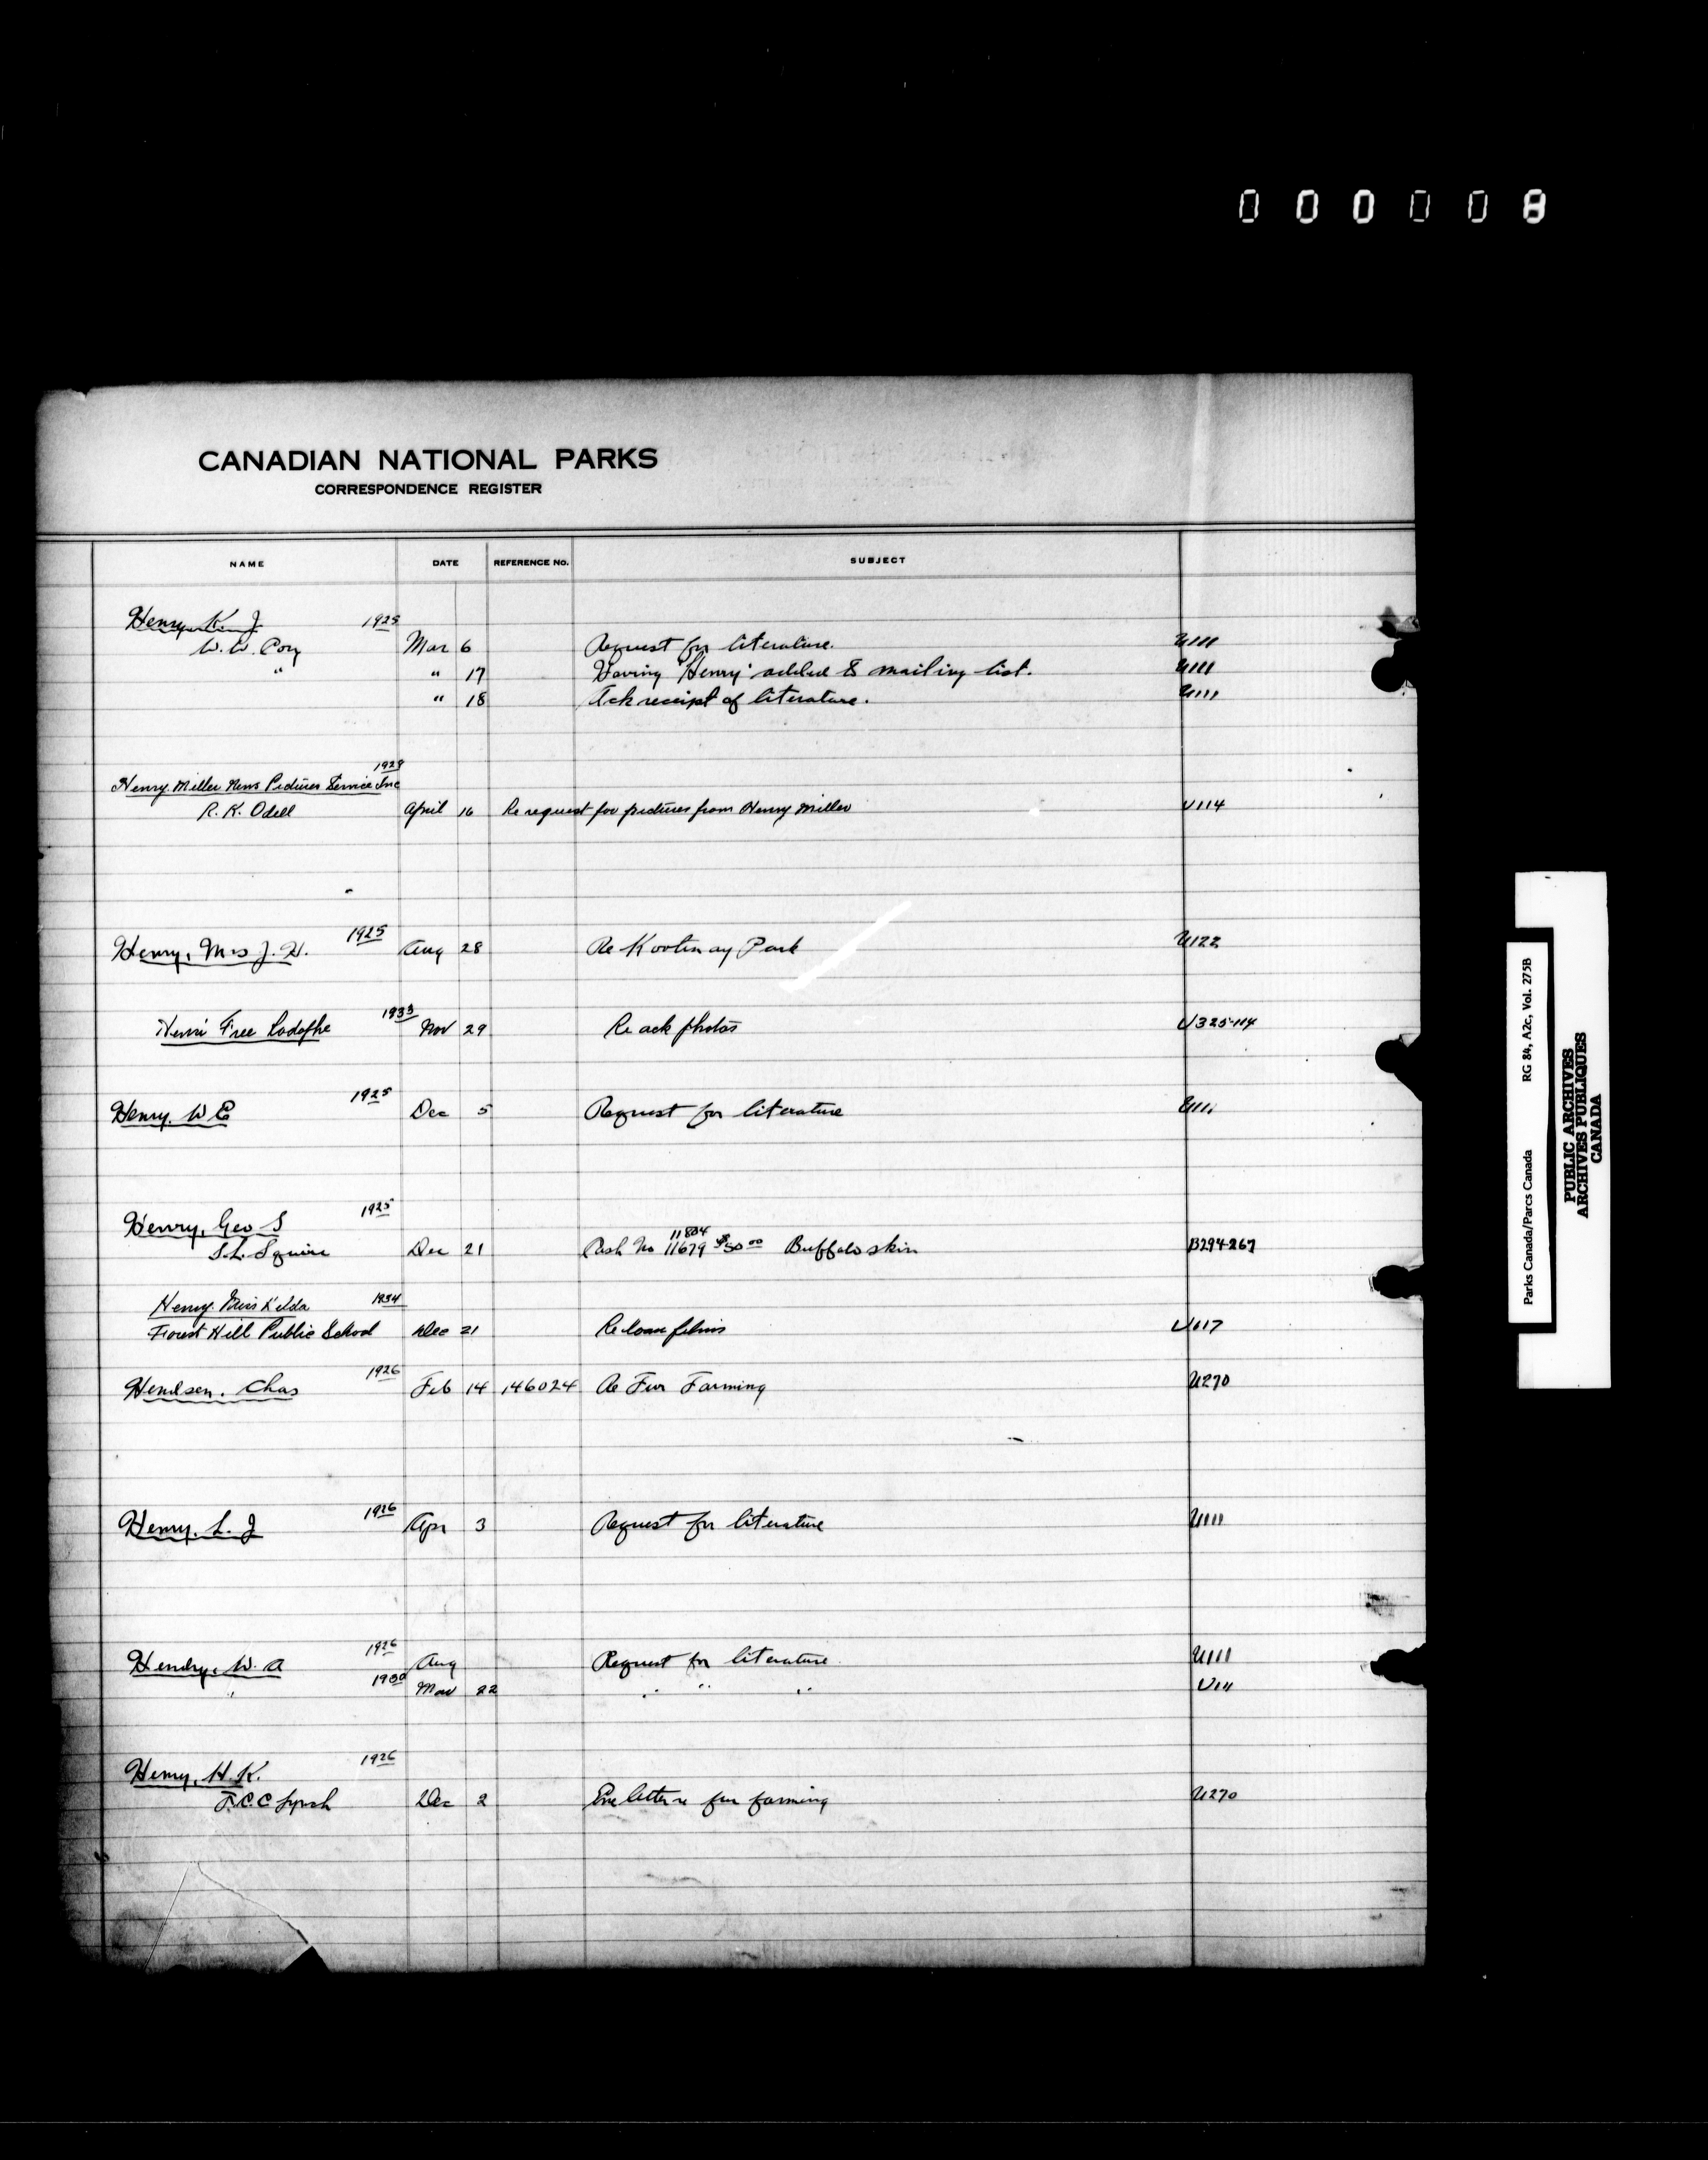 000008
CANADIAN NATIONAL PARKS
CORRESPONDENCE REGISTER
NAME DATE REFERENCE NO. SUBJECT
Henry K. J 1925
W. W. Cory Mar 6 Request for literature. U111
" " 17 Having 'Henry' added to mailing list. U111
" 18 Ack receipt of literature. U111
1929
Henry Miller News Pictures Service Inc
R. K. Odell April 16 Re request for pictures from Henry Miller U114
Henry, Mrs J. H. 1925 Aug 28 Re Kootenay Park U122
Henri Free 1933 Nov 29 Re ack photos U325-114
Henry. W E 1925 Dec 5 Request for literature U111
Henry, Geo S 1925
11804
S. L. Squire Dec 21 Cash No 11679 $50 00 Buffalo skin B294-267
Henry. Miss 1934
Forest Hill Public School Dec 21 Re loan films U117
Hendsen. Chas 1926 Feb 14 146024 Re Fur Farming U270
Henry. L. J 1926 Apr 3 Request for literature U111
Hendry, W. A 1926 Aug Request for literature U111
" 1930 Mar 22 " " " U111
Henry, H. K. 1926
F. C. C Lynch Dec 2 letter re fur farming U270
Parks Canada/Parcs Canada RG 84, A2c, Vol. 275B
PUBLIC ARCHIVES
ARCHIVES PUBLIQUES
CANADA